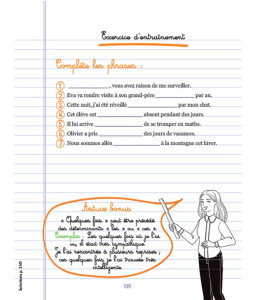 Exercice d'entraînement
Complète les phrases :
1 ____________, vous avez raison de me surveiller.
2 Eva va rendre visite à son grand-père ____________ par an.
3 Cette nuit, j'ai été réveillé ____________ par mon chat.
4 Cet élève est ____________ absent pendant des jours.
5 Il lui arrive ____________ de se tromper en maths.
6 Olivier a pris ____________ des jours de vacances.
7 Nous sommes allés ____________ à la montagne cet hiver.
Astuce bonus
« Quelques fois » peut être précédé
des déterminants « les » ou « ces ».
Exemples : Les quelques fois où je l'ai
vu, il était très sympathique.
Je l'ai rencontrée à plusieurs reprises ;
ces quelques fois, je l'ai trouvée très
intelligente.
Solutions p. 240